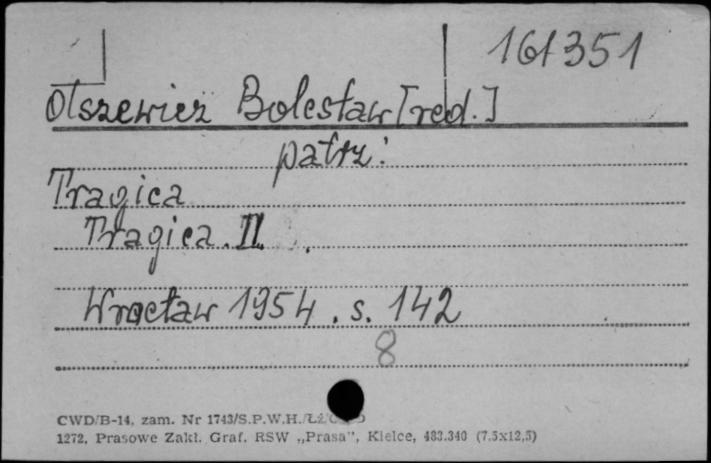 161351
Olszewicz Bolesław [red.]
patrz:
Tragica
Tragica. II.
Wrocław 1954. s. 142
8
CWD/B-14, zam. Nr 1743/S.P.W.H.
1272. Prasowe Zakł. Graf. RSW „Prasa", Kielce, 483.340 (7,5x12,5)